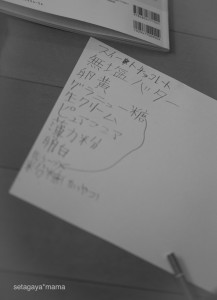 スイートチョコレート
無塩バター
卵黄
グラニュー糖
生クリーム
ピュアココア
薄力粉
卵白
setagaya*mama